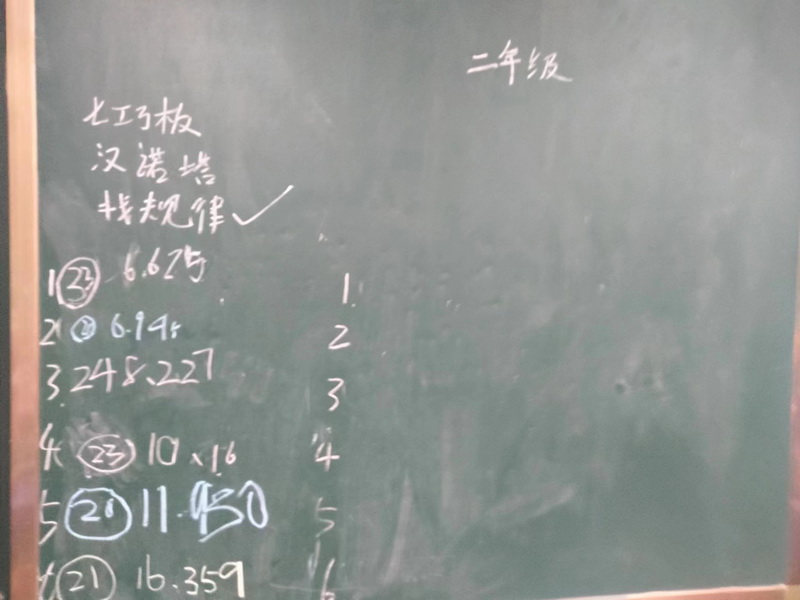 二年级
七巧板
汉诺塔
找规律✓
1 23 6.625
2 6.94s
3.248.227
4 23 10.16
5 21 11.950
21 16.359
1.
2
3
4
5
6